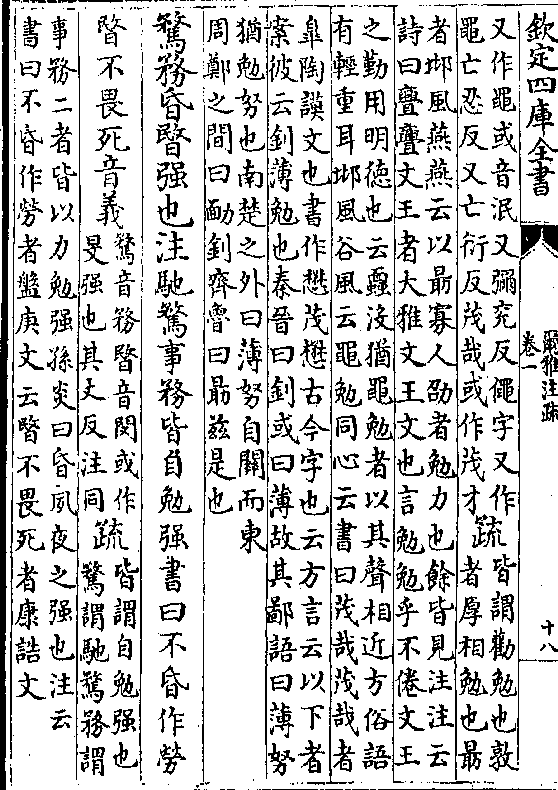 欽定四庫全書
爾雅注疏
卷一
十八
又作黽或音泯又彌兖反僶字又作
黽亡忍反又亡衍反茂哉或作茂才
疏
皆謂勸勉也敦
者厚相勉也勗
者邶風燕燕云以勗寡人劭者勉力也餘皆見注注云
詩曰亹亹文王者大雅文王文也言勉勉乎不倦文王
之勤用明德也云蠠沒猶黽勉者以其聲相近方俗語
有輕重耳邶風谷風云黽勉同心云書曰茂哉茂哉者
臯陶謨文也書作懋茂懋古今字也云方言云以下者
案彼云釗薄勉也秦晉曰釗或曰薄故其鄙語曰薄努
猶勉努也南楚之外曰薄努自關而東
周鄭之間曰勔釗齊魯曰勗兹是也
騖務昏暋强也注馳騖事務皆自勉强書曰不昏作勞
暋不畏死音義
騖音務暋音閔或作
旻强也其丈反注同
疏
皆謂自勉强也
騖謂馳騖務謂
事務二者皆以力勉强孫炎曰昏夙夜之强也注云
書曰不昏作勞者盤庚文云暋不畏死者康誥文